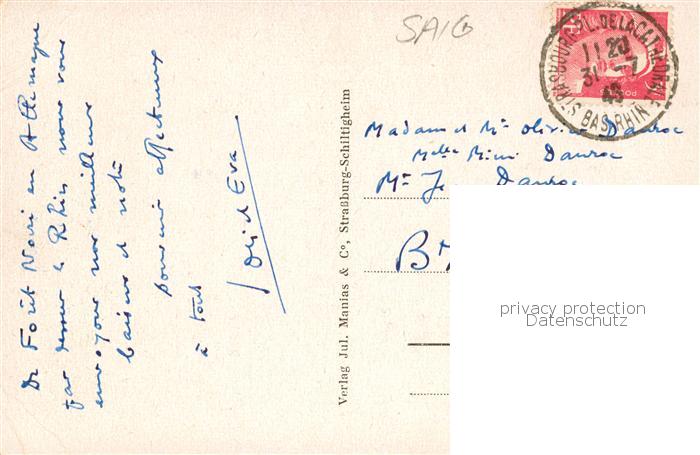 SAIG
STRASBOURG PL. DE LA CATHEDRALE
11 20
31 -7
BAS-RHIN
De Forêt Noire en Allemagne
par dessus le Rhin nous vous
envoyons nos meilleurs
baisers et notre
souvenir affectueux
à tous
et Eva
Verlag Jul. Manias & Co., Straßburg-Schiltigheim
Madame et Mr Olivier Dauroc
Melle Mimi Dauroc
Mr Dauroc
privacy protection
Datenschutz